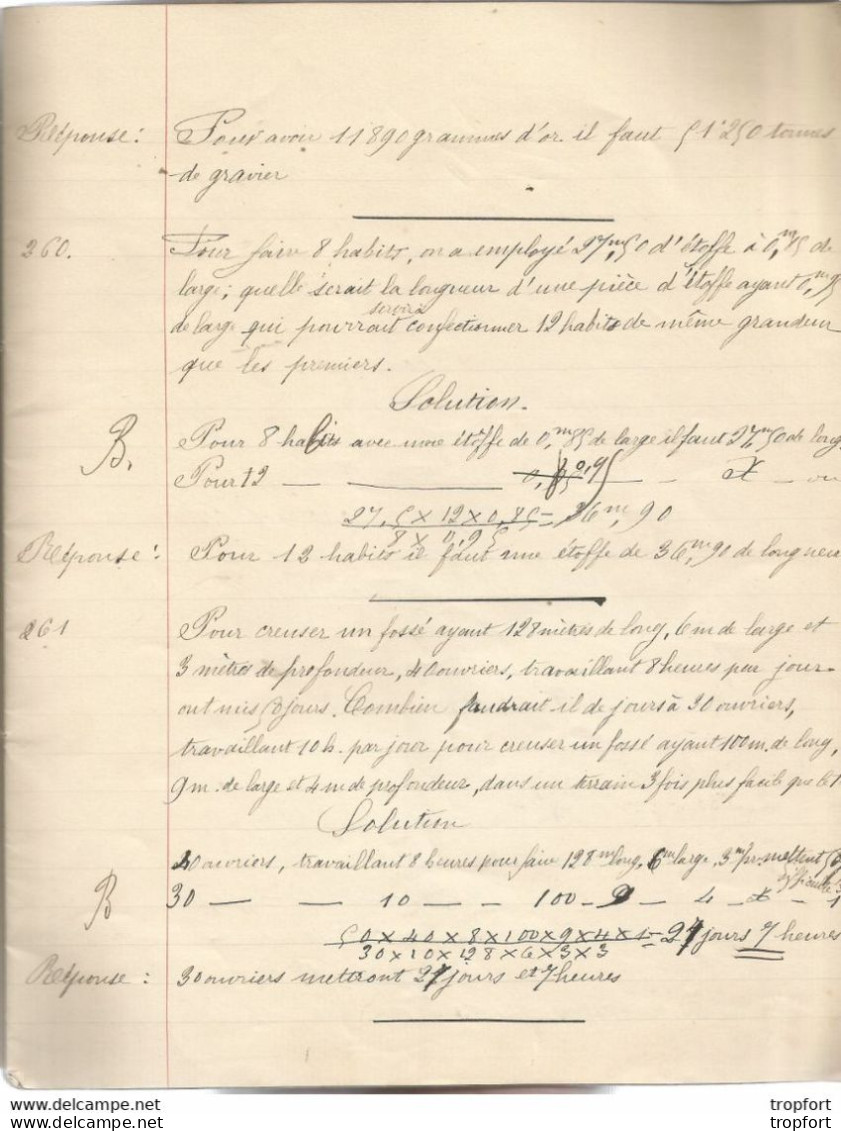 Réponse: Pour avoir 11890 grammes d'or il faut 51250 tonnes
de gravier
260. Pour faire 8 habits, on a employé 27m,50 d'étoffe à 0,m85 de
large; quelle serait la longueur d'une pièce d'étoffe ayant 0,m95
de large qui pourrait servir à confectionner 12 habits de même grandeur
que les premiers.
Solution.
B. Pour 8 habits avec une étoffe de 0,m85 de large il faut 27,m50 de long
Pour 12 — — 0,95 — — x — ou
27,5 × 12 × 0,85 = 36m,90
8 × 0,95
Réponse: Pour 12 habits il faut une étoffe de 36,m90 de longueur
261 Pour creuser un fossé ayant 128 mètres de long, 6m de large et
3 mètres de profondeur, 40 ouvriers, travaillant 8 heures par jour
ont mis 50 jours. Combien faudrait-il de jours à 30 ouvriers,
travaillant 10 h. par jour pour creuser un fossé ayant 100 m. de long,
9 m. de large et 4 m de profondeur, dans un terrain 3 fois plus facile que le 1
Solution
40 ouvriers, travaillant 8 heures pour faire 128m long, 6m large, 3m pr. mettent 50
B 30 — — 10 — — 100 — 9 — 4 — x — 1
50 × 40 × 8 × 100 × 9 × 4 × 1 = 27 jours 7 heures
30 × 10 × 128 × 6 × 3 × 3
Réponse: 30 ouvriers mettront 27 jours et 7 heures
www.delcampe.net
tropfort
www.delcampe.net
tropfort